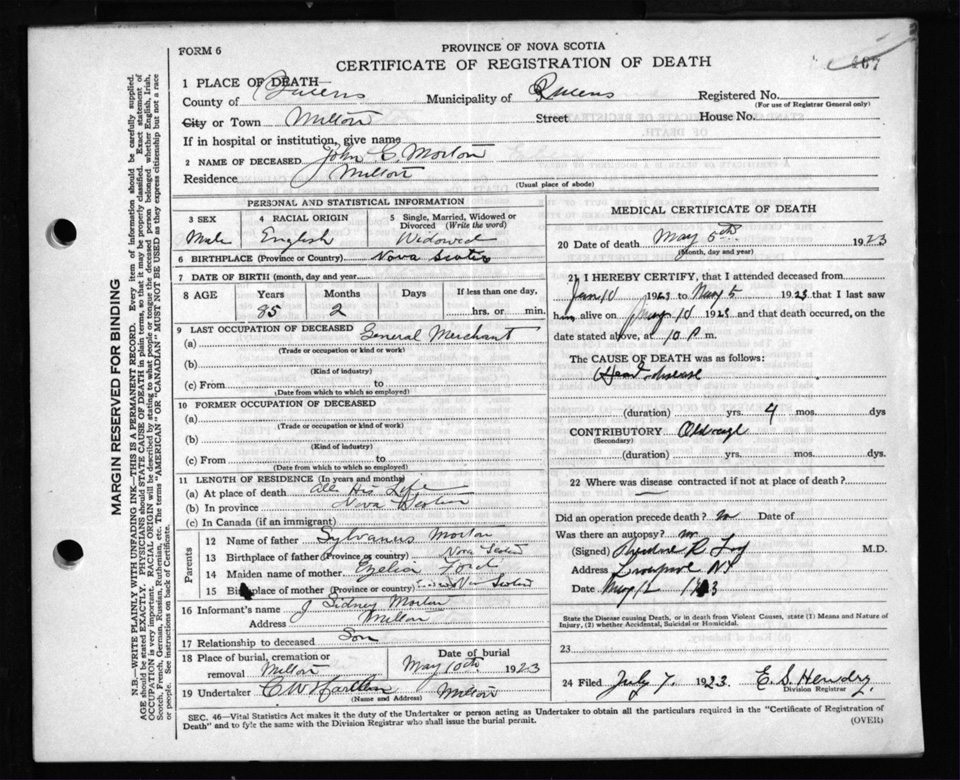 FORM 6
PROVINCE OF NOVA SCOTIA
CERTIFICATE OF REGISTRATION OF DEATH
467
1 PLACE OF DEATH
County of Queens Municipality of Queens Registered No.
(For use of Registrar General only)
City or Town Milton Street House No.
If in hospital or institution, give name
2 NAME OF DECEASED John C. Morton
Residence Milton
(Usual place of abode)
PERSONAL AND STATISTICAL INFORMATION
3 SEX 4 RACIAL ORIGIN 5 Single, Married, Widowed or Divorced (Write the word)
Male English Widowed
6 BIRTHPLACE (Province or Country) Nova Scotia
7 DATE OF BIRTH (month, day and year)
8 AGE Years Months Days If less than one day,
85 2 hrs. or min.
9 LAST OCCUPATION OF DECEASED
(a) General Merchant
(Trade or occupation or kind of work)
(b)
(Kind of industry)
(c) From to
(Date from which to which so employed)
10 FORMER OCCUPATION OF DECEASED
(a)
(Trade or occupation or kind of work)
(b)
(Kind of industry)
(c) From to
(Date from which to which so employed)
11 LENGTH OF RESIDENCE (In years and months)
(a) At place of death All His Life
(b) In province Nova Scotia
(c) In Canada (if an immigrant)
Parents
12 Name of father Sylvanus Morton
13 Birthplace of father (Province or country) Nova Scotia
14 Maiden name of mother Ford
15 Birthplace of mother (Province or country) Nova Scotia
16 Informant's name J Sidney Morton
Address Milton
17 Relationship to deceased Son
18 Place of burial, cremation or removal Milton Date of burial May 10th 1923
19 Undertaker C W Milton
(Name and Address)
MEDICAL CERTIFICATE OF DEATH
20 Date of death May 5th 1923
(Month, day and year)
21 I HEREBY CERTIFY, that I attended deceased from
Jan 10 1923 to May 5 1923 that I last saw
him alive on 1923 and that death occurred, on
date stated above, at 10 P m.
The CAUSE OF DEATH was as follows:
Heart disease
(duration) yrs. 4 mos. dys
CONTRIBUTORY Old age
(Secondary)
(duration) yrs. mos. dys.
22 Where was disease contracted if not at place of death?
Did an operation precede death? no Date of
Was there an autopsy? no
(Signed) M.D.
Address
Date May
State the Disease causing Death, or in death from Violent Causes, state (1) Means and Nature of
Injury, (2) whether Accidental, Suicidal or Homicidal.
23
24 Filed July 7, 1923. E. S. Hendry
Division Registrar
SEC. 46—Vital Statistics Act makes it the duty of the Undertaker or person acting as Undertaker to obtain all the particulars required in the "Certificate of Registration of
Death" and to fyle the same with the Division Registrar who shall issue the burial permit.
(OVER)
MARGIN RESERVED FOR BINDING
N.B.—WRITE PLAINLY WITH UNFADING INK—THIS IS A PERMANENT RECORD. Every item of information should be carefully supplied.
AGE should be stated EXACTLY. PHYSICIANS should STATE CAUSE OF DEATH in plain terms, so that it may be properly classified. Exact statement of
OCCUPATION is very important. RACIAL ORIGIN will be described by stating to what people or tongue the deceased person belonged whether English, Irish,
Scotch, French, German, Russian, Ruthenian, etc. The terms "AMERICAN" OR "CANADIAN" MUST NOT BE USED as they express citizenship but not a race
or people. See instructions on back of Certificate.